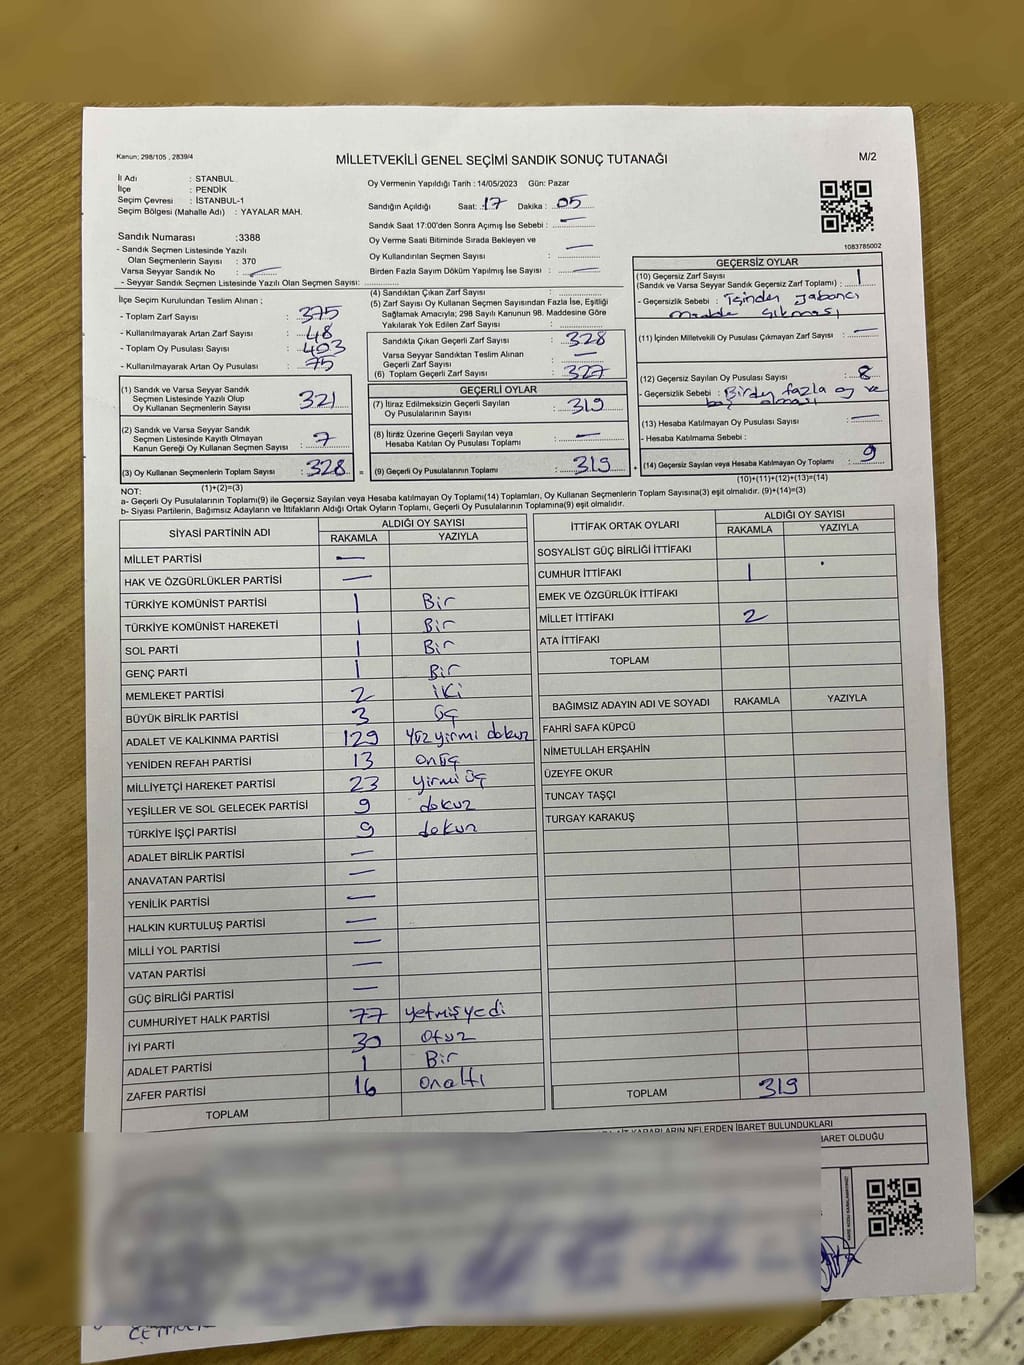 Kanun; 298/105 , 2839/4
MİLLETVEKİLİ GENEL SEÇİMİ SANDIK SONUÇ TUTANAĞI
M/2
İl Adı : STANBUL
İlçe : PENDİK
Seçim Çevresi : İSTANBUL-1
Seçim Bölgesi (Mahalle Adı) : YAYALAR MAH.
Oy Vermenin Yapıldığı Tarih : 14/05/2023 Gün: Pazar
Sandığın Açıldığı Saat: 17 Dakika : 05
Sandık Saat 17:00'den Sonra Açımış İse Sebebi : —
Oy Verme Saati Bitiminde Sırada Bekleyen ve
Oy Kullandırılan Seçmen Sayısı : —
Birden Fazla Sayım Döküm Yapılmış İse Sayısı : —
1083785002
Sandık Numarası :3388
- Sandık Seçmen Listesinde Yazılı
Olan Seçmenlerin Sayısı : 370
Varsa Seyyar Sandık No : —
- Seyyar Sandık Seçmen Listesinde Yazılı Olan Seçmen Sayısı:
İlçe Seçim Kurulundan Teslim Alınan ;
- Toplam Zarf Sayısı : 375
- Kullanılmayarak Artan Zarf Sayısı : 48
- Toplam Oy Pusulası Sayısı : 403
- Kullanılmayarak Artan Oy Pusulası : 75
(1) Sandık ve Varsa Seyyar Sandık
Seçmen Listesinde Yazılı Olup
Oy Kullanan Seçmenlerin Sayısı : 321
(2) Sandık ve Varsa Seyyar Sandık
Seçmen Listesinde Kayıtlı Olmayan
Kanun Gereği Oy Kullanan Seçmen Sayısı : 7
(3) Oy Kullanan Seçmenlerin Toplam Sayısı : 328 =
(1)+(2)=(3)
(4) Sandıktan Çıkan Zarf Sayısı :
(5) Zarf Sayısı Oy Kullanan Seçmen Sayısından Fazla İse, Eşitliği
Sağlamak Amacıyla; 298 Sayılı Kanunun 98. Maddesine Göre
Yakılarak Yok Edilen Zarf Sayısı :
Sandıkta Çıkan Geçerli Zarf Sayısı : 328
Varsa Seyyar Sandıktan Teslim Alınan
Geçerli Zarf Sayısı : —
(6) Toplam Geçerli Zarf Sayısı : 327
GEÇERLİ OYLAR
(7) İtiraz Edilmeksizin Geçerli Sayılan
Oy Pusulalarının Sayısı : 319
(8) İtiraz Üzerine Geçerli Sayılan veya
Hesaba Katılan Oy Pusulası Toplamı : —
(9) Geçerli Oy Pusulalarının Toplamı : 319 +
GEÇERSİZ OYLAR
(10) Geçersiz Zarf Sayısı
(Sandık ve Varsa Seyyar Sandık Geçersiz Zarf Toplamı) : 1
- Geçersizlik Sebebi : İçinden yabancı
madde çıkması
(11) İçinden Milletvekili Oy Pusulası Çıkmayan Zarf Sayısı : —
(12) Geçersiz Sayılan Oy Pusulası Sayısı : 8
- Geçersizlik Sebebi : Birden fazla oy ve
boş olması
(13) Hesaba Katılmayan Oy Pusulası Sayısı : —
- Hesaba Katılmama Sebebi :
(14) Geçersiz Sayılan veya Hesaba Katılmayan Oy Toplamı : 9
(10)+(11)+(12)+(13)=(14)
NOT:
a- Geçerli Oy Pusulalarının Toplamı(9) ile Geçersiz Sayılan veya Hesaba katılmayan Oy Toplamı(14) Toplamları, Oy Kullanan Seçmenlerin Toplam Sayısına(3) eşit olmalıdır. (9)+(14)=(3)
b- Siyasi Partilerin, Bağımsız Adayların ve İttifakların Aldığı Ortak Oyların Toplamı, Geçerli Oy Pusulalarının Toplamına(9) eşit olmalıdır.
SİYASİ PARTİNİN ADI ALDIĞI OY SAYISI
RAKAMLA YAZIYLA
MİLLET PARTİSİ —
HAK VE ÖZGÜRLÜKLER PARTİSİ —
TÜRKİYE KOMÜNİST PARTİSİ 1 Bir
TÜRKİYE KOMÜNİST HAREKETİ 1 Bir
SOL PARTİ 1 Bir
GENÇ PARTİ 1 Bir
MEMLEKET PARTİSİ 2 iki
BÜYÜK BİRLİK PARTİSİ 3 üç
ADALET VE KALKINMA PARTİSİ 129 yüz yirmi dokuz
YENİDEN REFAH PARTİSİ 13 onüç
MİLLİYETÇİ HAREKET PARTİSİ 23 yirmi üç
YEŞİLLER VE SOL GELECEK PARTİSİ 9 dokuz
TÜRKİYE İŞÇİ PARTİSİ 9 dokuz
ADALET BİRLİK PARTİSİ —
ANAVATAN PARTİSİ —
YENİLİK PARTİSİ —
HALKIN KURTULUŞ PARTİSİ —
MİLLİ YOL PARTİSİ —
VATAN PARTİSİ —
GÜÇ BİRLİĞİ PARTİSİ —
CUMHURİYET HALK PARTİSİ 77 yetmiş yedi
İYİ PARTİ 30 otuz
ADALET PARTİSİ 1 Bir
ZAFER PARTİSİ 16 onaltı
TOPLAM
İTTİFAK ORTAK OYLARI ALDIĞI OY SAYISI
RAKAMLA YAZIYLA
SOSYALİST GÜÇ BİRLİĞİ İTTİFAKI
CUMHUR İTTİFAKI 1
EMEK VE ÖZGÜRLÜK İTTİFAKI
MİLLET İTTİFAKI 2
ATA İTTİFAKI
TOPLAM
BAĞIMSIZ ADAYIN ADI VE SOYADI RAKAMLA YAZIYLA
FAHRİ SAFA KÜPCÜ
NİMETULLAH ERŞAHİN
ÜZEYFE OKUR
TUNCAY TAŞÇI
TURGAY KARAKUŞ
TOPLAM 319
KARARLARIN NELERDEN İBARET BULUNDUKLARI
BARET OLDUĞU